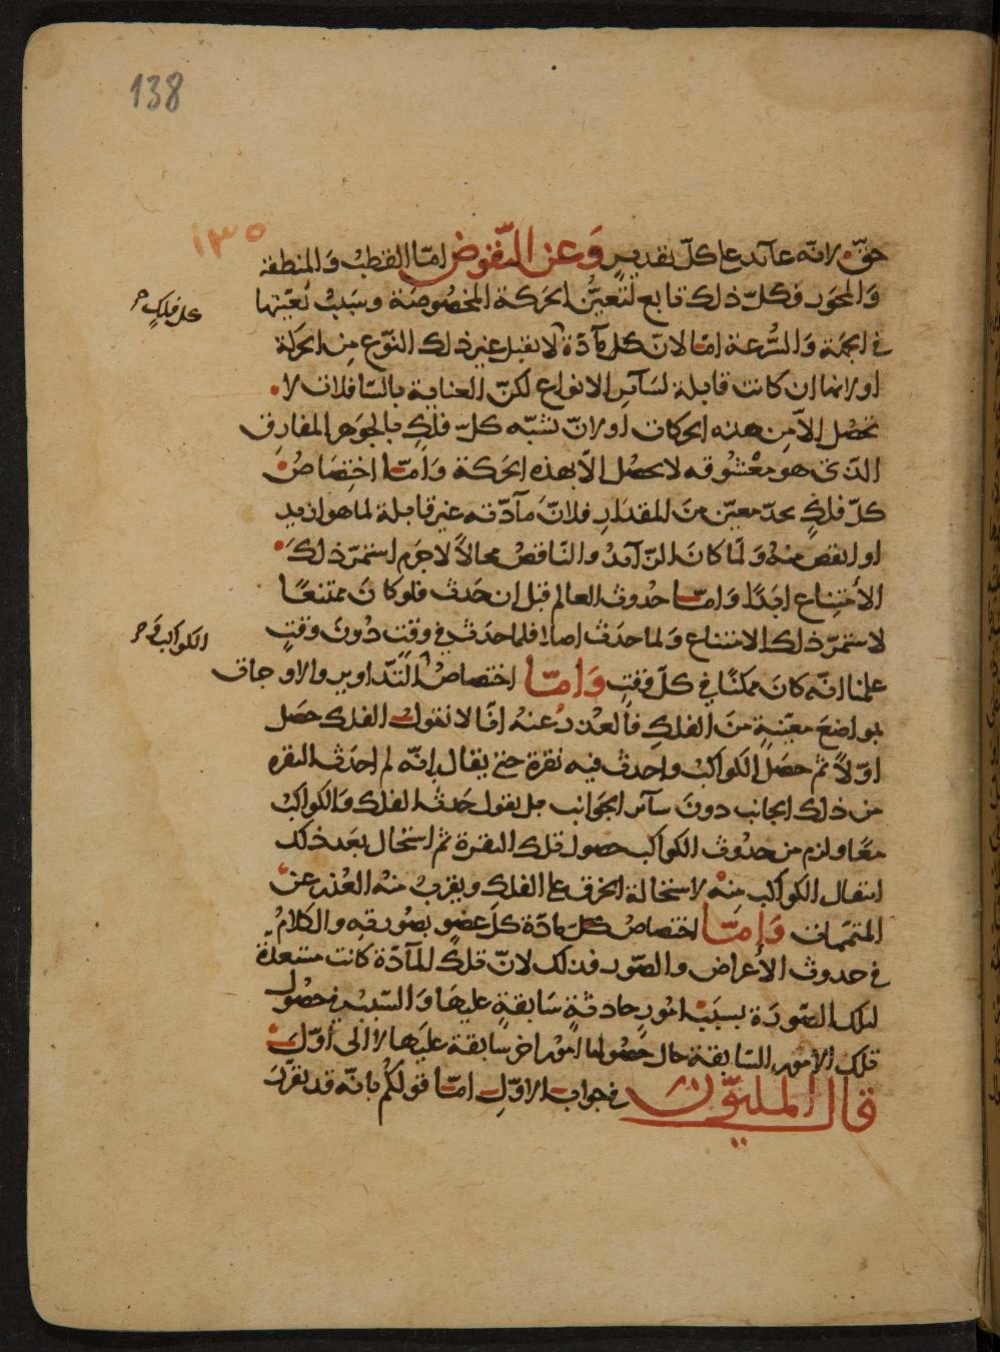 138
١٣٥
حق لانه عائد على كل تقدير وعن النقوض اما القطب والمنطقة
والمحور فكل ذلك تابع لتعين الحركة المخصوصة وسبب تعينها
كل فلك صح
في الجهة والسرعة اما لان كل مادة لا تقبل غير ذلك النوع من الحركة
او لانها ان كانت قابلة لسائر الانواع لكن العناية بالسافلات لا
تحصل الا من هذه الحركات او لان تشبه كل فلك بالجوهر المفارق
الذى هو معشوقه لا يحصل الا بهذه الحركة واما اختصاص
كل فلك بحد معين من المقدار فلان مادته غير قابلة لما هو ازيد
او انقص منه ولما كان الزائد والناقص محالا لا جرم استمر ذلك
الامتناع ابدا واما حدوث العالم قبل ان حدث فلو كان ممتنعا
لاستمر ذلك الامتناع ولما حدث اصلا فلما حدث في وقت دون وقت
الكواكب في صح
علمنا انه كان ممكنا في كل وقت واما اختصاص التداوير والاوجات
بمواضع معينة من الفلك فالعذر عنه انا لا نقول الفلك حصل
اولا ثم حصل الكواكب واحدث فيه نقرة حتى يقال انه لم احدث النقره
من ذلك الجانب دون سائر الجوانب بل نقول حدث الفلك والكواكب
معا ولزم من حدوث الكواكب حصول تلك النقرة ثم استحال بعد ذلك
انتقال الكواكب منه لاستحالة الخرق على الفلك ويقرب منه العذر عن
المتممات واما اختصاص كل مادة كل عضو بصورته والكلام
في حدوث الأعراض والصور فذلك لان تلك المادة كانت مستعدة
لتلك الصورة بسبب امور حادثة سابقة عليها والسبب في حصول
تلك الامور السابقة حال حصولها امور اخر سابقة عليها لا الى اول
قال المليون في جواب الاول اما قولكم بانه قد تقرر